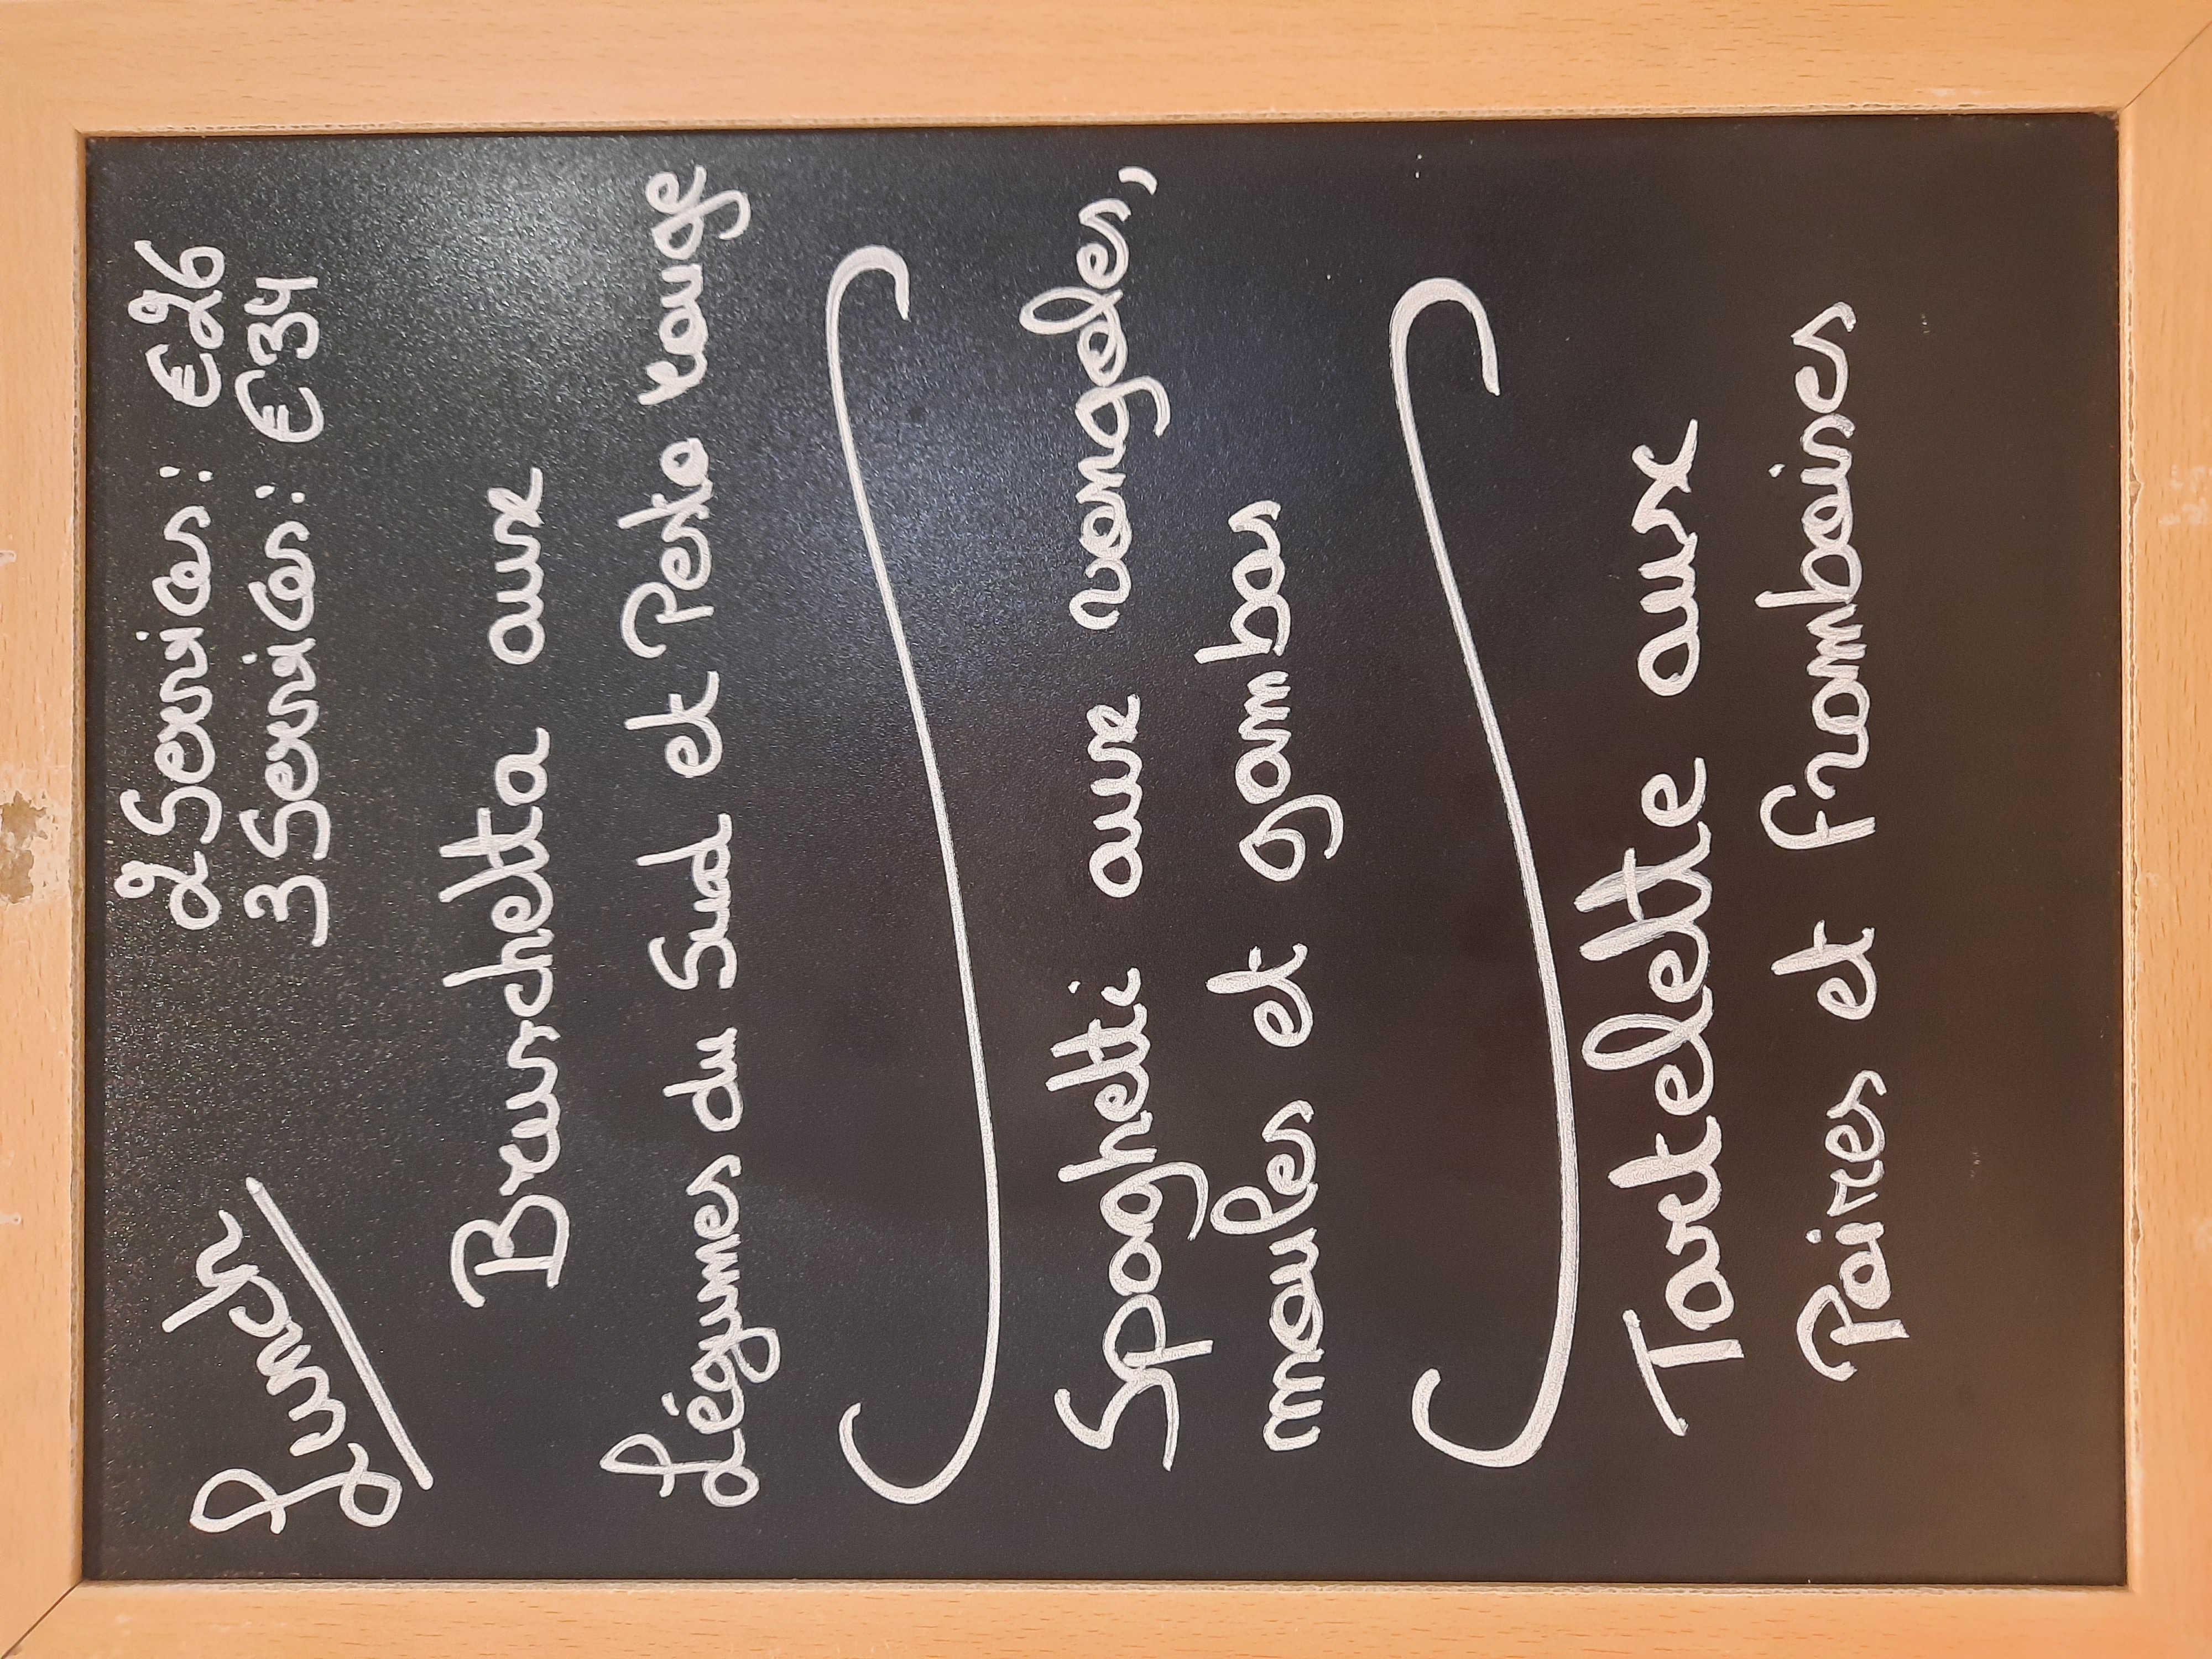 Lunch
2 Services : €26
3 Services : €34
Bruschetta aux
Légumes du Sud et Pesto rouge
Spaghetti aux vongoles,
moules et gambas
Tartelette aux
Poires et framboises